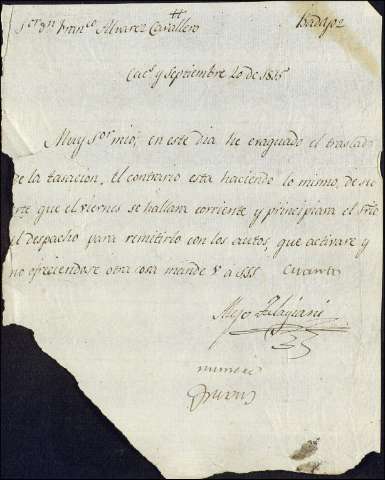 Sor Dn Franco Alvarez Cavallero Badajoz
Cacs y Septiembre 20 de 1815
Muy Sor mio, en este dia he evaquado el traslado
de la tasacion, el contrario esta haciendo lo mismo, de sue
rte que el viernes se hallara corriente y principiara el
el despacho para remitirlo con los autos, que activare y
no ofreciendose otra cosa mande V a su
Alejo